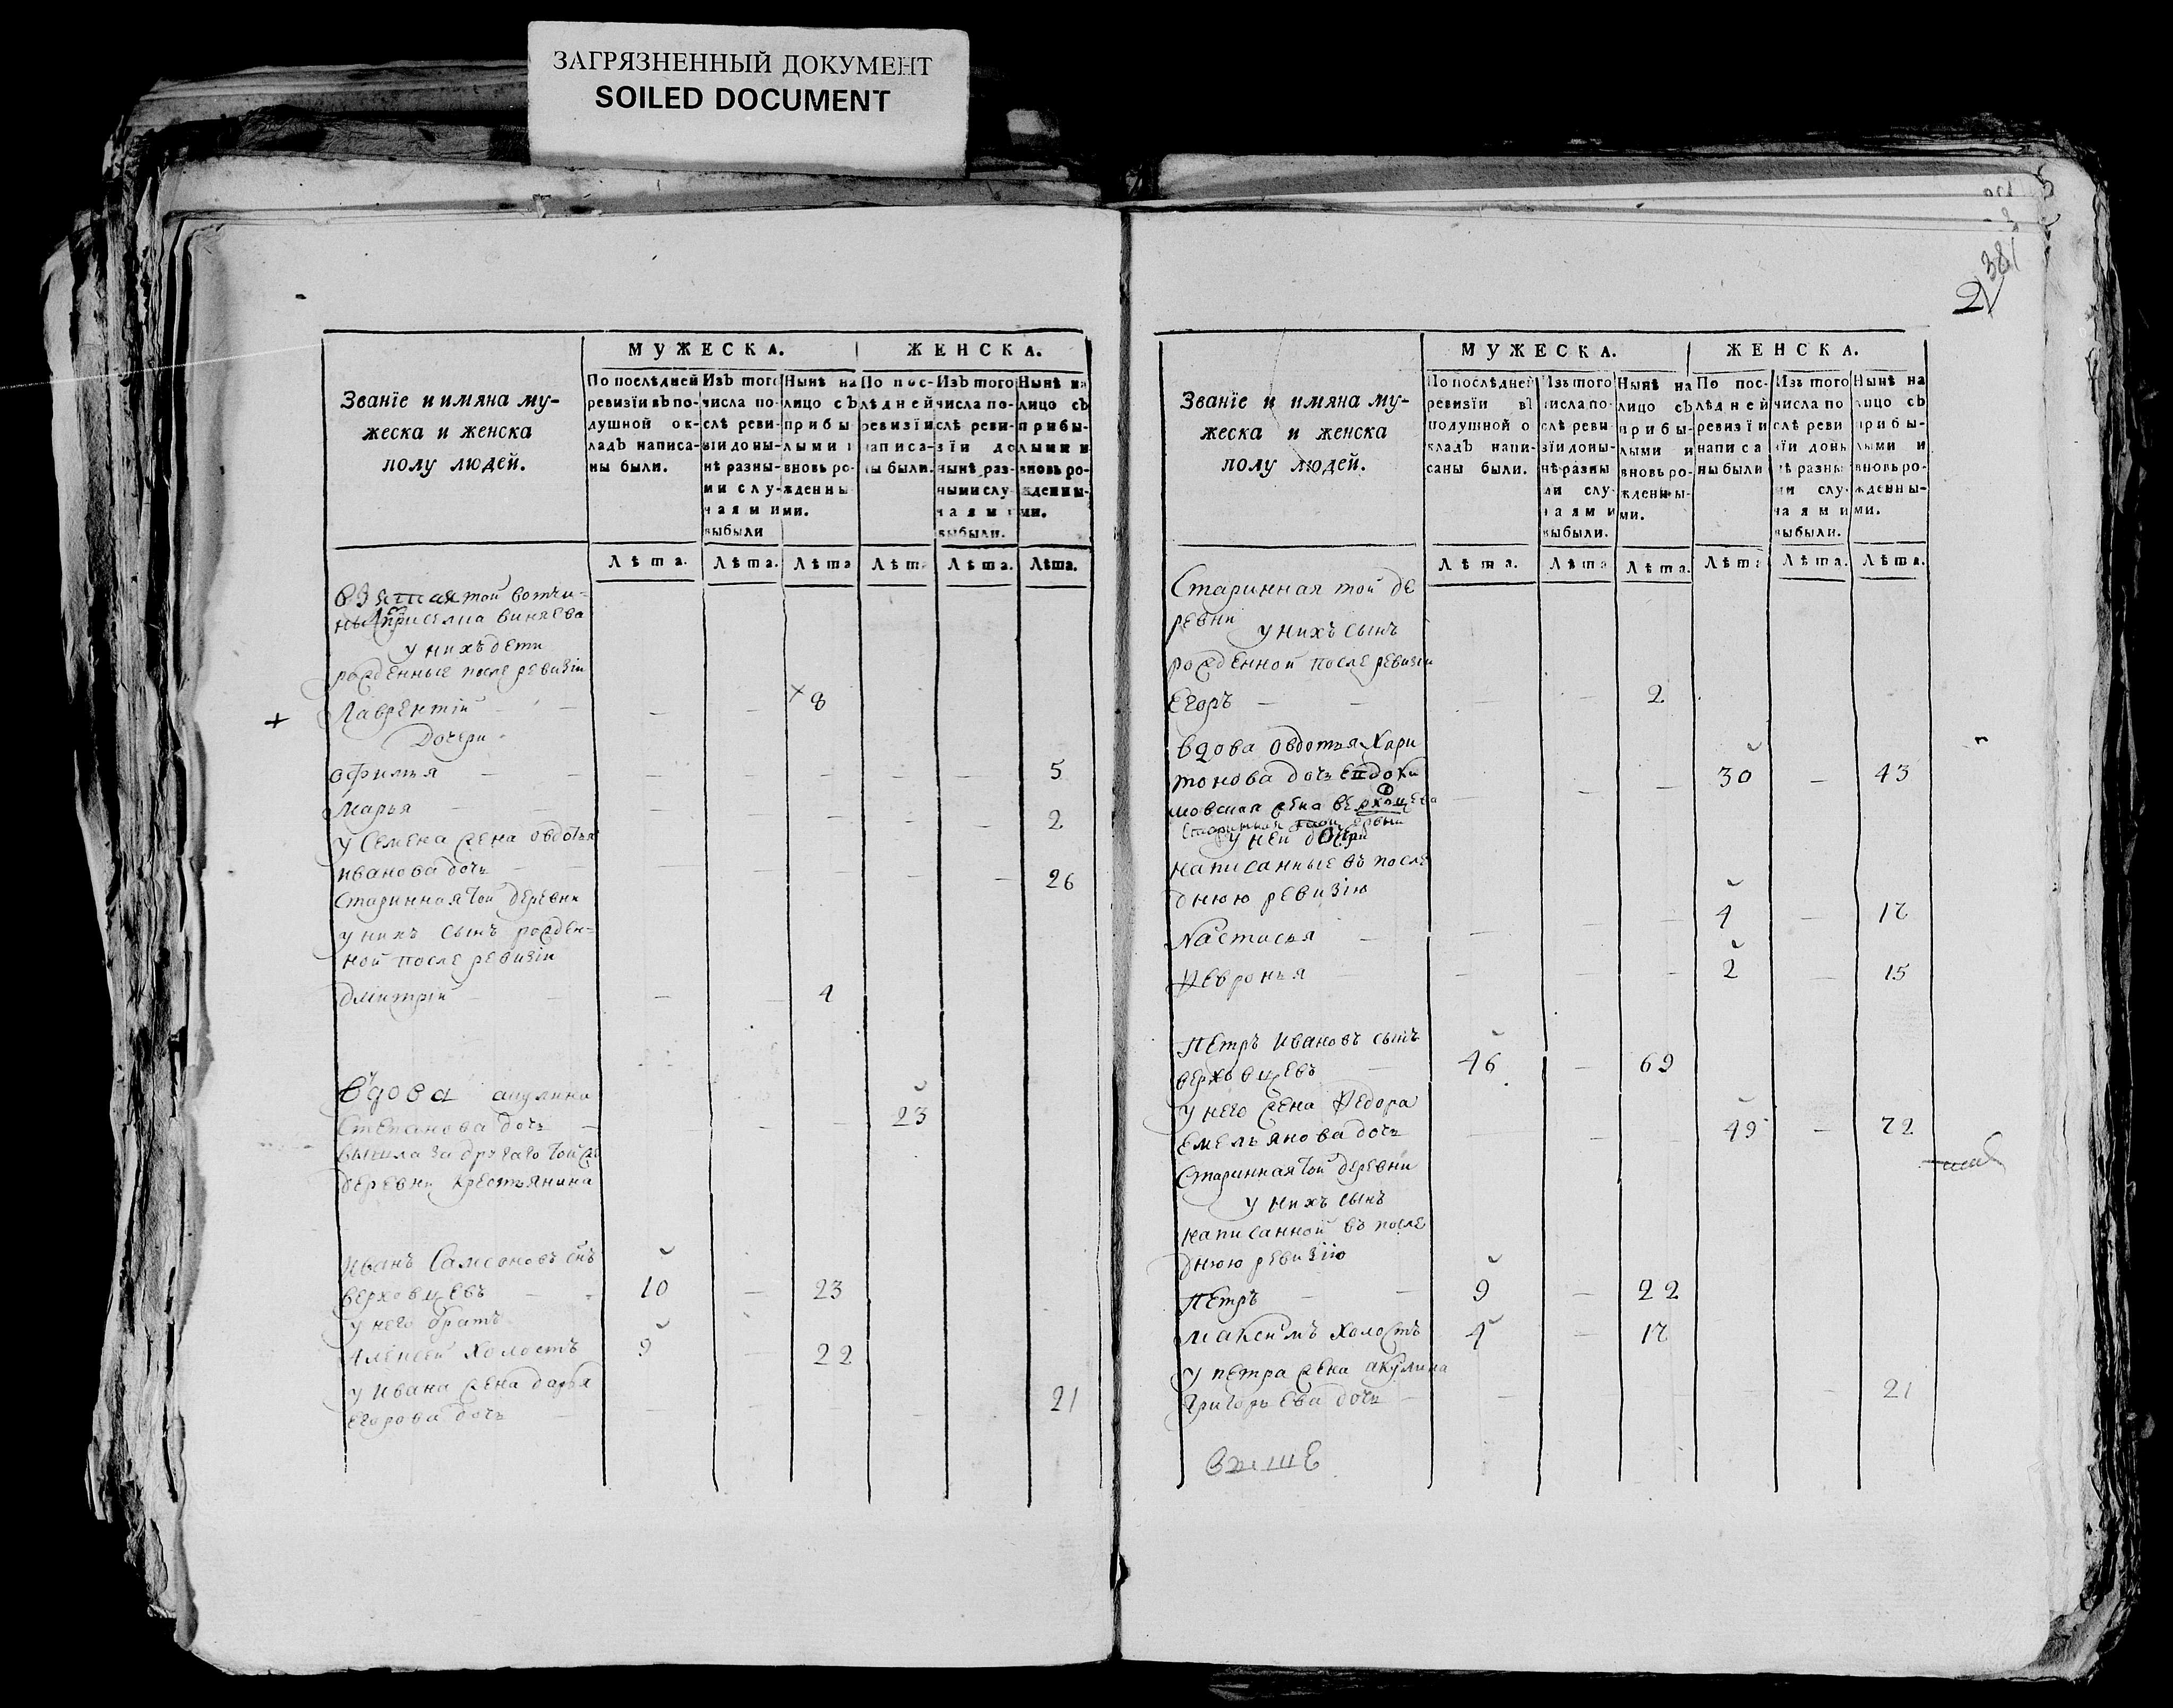 ЗАГРЯЗНЕННЫЙ ДОКУМЕНТ
SOILED DOCUMENT
381
2
Званїе и имяна му-
жеска и женска
полу людей.
МУЖЕСКА.
ЖЕНСКА.
По послѣдней ревизїи въ по-душной ок-ладъ написа-ны были.
Изъ того числа по-слѣ реви-зїи до ны-нѣ разны-ми слу-чаями выбыли
Нынѣ на лицо съ прибы-лыми и вновь ро-жденны-ми.
По пос-лѣдней ревизїи написа-ны были.
Изъ того числа по-слѣ реви-зїи до нынѣ раз-ными слу-чаями выбыли.
Нынѣ на лицо съ прибы-лыми и вновь ро-жденны-ми.
Лѣта. Лѣта. Лѣта Лѣта Лѣта. Лѣта.
взятая той вотчи-
у нихъ дети
рожденные после ревизiи
Лаврентiй 8
Дочери
офимья 5
Марья 2
у Семена жена овдотья
иванова дочь 26
Старинная той деревни
у нихъ сынъ рожден-
ной после ревизiи
дмитрiй 4
Вдова акулина
Степанова дочь 23
вышла за другаго той же
деревни крестьянина
Иванъ Самсоновъ снъ
верховцевъ 10 23
у него братъ
Алексей холостъ 9 22
у Ивана жена дарья
Егорова дочь 21
Званїе и имяна му-
жеска и женска
полу людей.
МУЖЕСКА.
ЖЕНСКА.
По послѣдней ревизїи въ подушной о кладъ напи-саны были.
Изъ того числа по-слѣ реви-зїи до ны-нѣ разны ми слу-чаями выбыли.
Нынѣ на лицо съ прибы-лыми и вновь ро-жденны-ми.
По пос-лѣдней ревизїи написа ны были
Изъ того числа по слѣ реви зїи до нынѣ разны ми слу-чаями выбыли.
Нынѣ на лицо съ прибы-лыми и вновь ро-жденны-ми.
Лѣта. Лѣта Лѣта. Лѣта Лѣта. Лѣта.
Старинная той де
ревни
у нихъ сынъ
рожденной после ревизiи
Егоръ 2
вдова овдотья Хари
тонова дочь Евдоки 30 43
мовская жена верховцева
Старинная той деревни
у ней дочери
написанные въ после
днюю ревизiю
Настасья 4 17
Февронья 2 15
Петръ Ивановъ сынъ
верховцевъ 46 69
у него жена Федора
Емельянова дочь 49 72
Старинная той деревни
у нихъ сынъ
написанной въ после
днюю ревизiю
Петръ 9 22
Максимъ холостъ 4 17
у петра жена акулина
Григорьева дочь 21